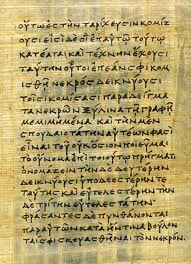 ΟΥΤΩΕϹΤΗΝΤΑΡΙΧΕΥϹΙΝΚΟΜΙΖ
ΟΥϹΙΕΙϹΙΔΕΟΙΕΠΑΥΤΩΤΟΥΤΩ
ΚΑΤΕΑΤΑΙΚΑΙΤΕΧΝΗΝΕΧΟΥϹΙ
ΤΑΥΤΗΝΟΥΤΟΙΕΠΕΑΝϹΦΙΚΟΜ
ΙϹΘΗΝΕΚΡΟϹΔΕΙΚΝΥΟΥϹΙ
ΤΟΙϹΙΚΟΜΙϹΑϹΙΠΑΡΑΔΕΙΓΜΑ
ΤΑΝΕΚΡΩΝΞΥΛΙΝΑΤΗΓΡΑΦΗ
ΜΕΜΙΜΗΜΕΝΑΚΑΙΤΗΝΜΕΝ
ϹΠΟΥΔΑΙΟΤΑΤΗΝΑΥΤΕΩΝΦΑϹΙ
ΕΙΝΑΙΤΟΥΟΥΚΟϹΙΟΝΠΟΙΕΥΜΑΙ
ΤΟΟΥΝΟΜΑΕΠΙΤΟΙΟΥΤΩΠΡΗΓΜΑΤΙ
ΟΝΟΜΑΖΕΙΝΤΗΝΔΕΔΕΥΤΕΡΗΝ
ΔΕΙΚΝΥΟΥϹΙΥΠΟΔΕΕϹΤΕΡΗΝΤΕ
ΤΑΥΤΗϹΚΑΙΕΥΤΕΛΕϹΤΕΡΗΝΤΗΝ
ΔΕΤΡΙΤΗΝΕΥΤΕΛΕϹΤΑΤΗΝ
ΦΡΑϹΑΝΤΕϹΔΕΠΥΝΘΑΝΟΝΤΑΙ
ΠΑΡΑΥΤΩΝΚΑΤΑΗΝΤΙΝΑΒΟΥΛΟΝ
ΤΑΙϹΦΙϹΚΕΥΑϹΘΗΝΑΙΤΟΝΝΕΚΡΟΝ